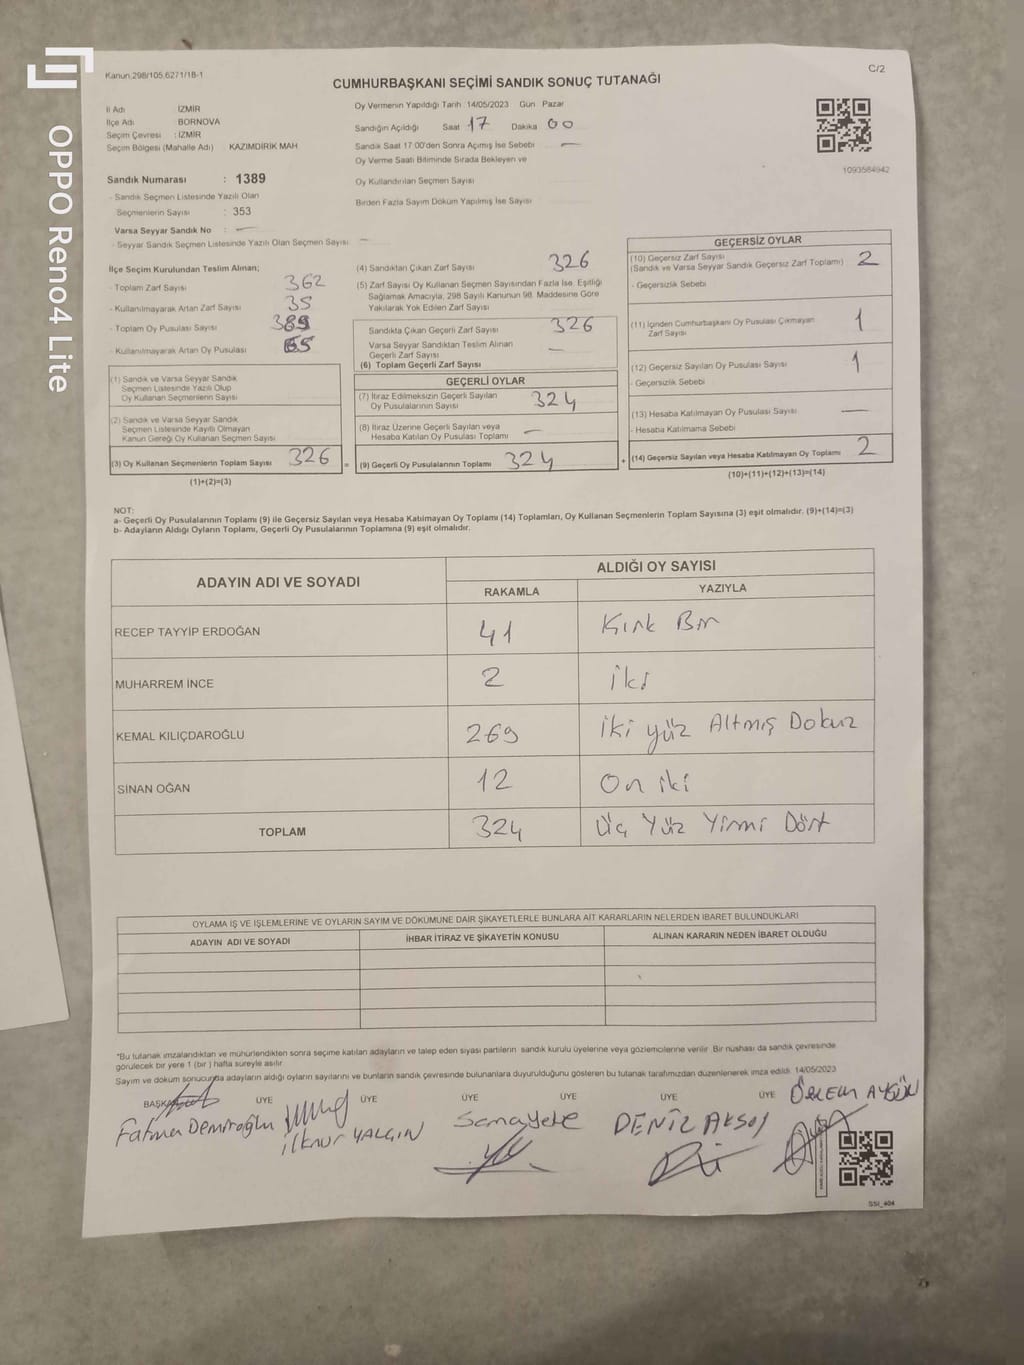 OPPO Reno4 Lite
Kanun.298/105.6271/18-1
C/2
CUMHURBAŞKANI SEÇİMİ SANDIK SONUÇ TUTANAĞI
İl Adı : İZMİR
İlçe Adı : BORNOVA
Seçim Çevresi : İZMİR
Seçim Bölgesi (Mahalle Adı) : KAZIMDİRİK MAH
Sandık Numarası : 1389
- Sandık Seçmen Listesinde Yazılı Olan
Seçmenlerin Sayısı : 353
Varsa Seyyar Sandık No : —
- Seyyar Sandık Seçmen Listesinde Yazılı Olan Seçmen Sayısı —
Oy Vermenin Yapıldığı Tarih 14/05/2023 Gün Pazar
Sandığın Açıldığı Saat 17 Dakika 00
Sandık Saat 17:00'den Sonra Açımış İse Sebebi —
Oy Verme Saati Bitiminde Sırada Bekleyen ve
Oy Kullandırılan Seçmen Sayısı
Birden Fazla Sayım Döküm Yapılmış İse Sayısı
1093584942
İlçe Seçim Kurulundan Teslim Alınan;
- Toplam Zarf Sayısı 362
- Kullanılmayarak Artan Zarf Sayısı 35
- Toplam Oy Pusulası Sayısı 389
- Kullanılmayarak Artan Oy Pusulası 65
(1) Sandık ve Varsa Seyyar Sandık
Seçmen Listesinde Yazılı Olup
Oy Kullanan Seçmenlerin Sayısı
(2) Sandık ve Varsa Seyyar Sandık
Seçmen Listesinde Kayıtlı Olmayan
Kanun Gereği Oy Kullanan Seçmen Sayısı
(3) Oy Kullanan Seçmenlerin Toplam Sayısı 326 =
(1)+(2)=(3)
(4) Sandıktan Çıkan Zarf Sayısı 326
(5) Zarf Sayısı Oy Kullanan Seçmen Sayısından Fazla İse, Eşitliği
Sağlamak Amacıyla, 298 Sayılı Kanunun 98. Maddesine Göre
Yakılarak Yok Edilen Zarf Sayısı
Sandıkta Çıkan Geçerli Zarf Sayısı 326
Varsa Seyyar Sandıktan Teslim Alınan
Geçerli Zarf Sayısı —
(6) Toplam Geçerli Zarf Sayısı
GEÇERLİ OYLAR
(7) İtiraz Edilmeksizin Geçerli Sayılan
Oy Pusulalarının Sayısı 324
(8) İtiraz Üzerine Geçerli Sayılan veya
Hesaba Katılan Oy Pusulası Toplamı —
(9) Geçerli Oy Pusulalarının Toplamı 324 +
GEÇERSİZ OYLAR
(10) Geçersiz Zarf Sayısı
(Sandık ve Varsa Seyyar Sandık Geçersiz Zarf Toplamı) 2
- Geçersizlik Sebebi
(11) İçinden Cumhurbaşkanı Oy Pusulası Çıkmayan
Zarf Sayısı 1
(12) Geçersiz Sayılan Oy Pusulası Sayısı 1
- Geçersizlik Sebebi
(13) Hesaba Katılmayan Oy Pusulası Sayısı —
- Hesaba Katılmama Sebebi
(14) Geçersiz Sayılan veya Hesaba Katılmayan Oy Toplamı 2
(10)+(11)+(12)+(13)=(14)
NOT:
a- Geçerli Oy Pusulalarının Toplamı (9) ile Geçersiz Sayılan veya Hesaba Katılmayan Oy Toplamı (14) Toplamları, Oy Kullanan Seçmenlerin Toplam Sayısına (3) eşit olmalıdır. (9)+(14)=(3)
b- Adayların Aldığı Oyların Toplamı, Geçerli Oy Pusulalarının Toplamına (9) eşit olmalıdır.
ADAYIN ADI VE SOYADI ALDIĞI OY SAYISI
RAKAMLA YAZIYLA
RECEP TAYYİP ERDOĞAN 41 Kırk Bir
MUHARREM İNCE 2 iki
KEMAL KILIÇDAROĞLU 269 iki yüz Altmış Dokuz
SİNAN OĞAN 12 On iki
TOPLAM 324 Üç Yüz Yirmi Dört
OYLAMA İŞ VE İŞLEMLERİNE VE OYLARIN SAYIM VE DÖKÜMÜNE DAİR ŞİKAYETLERLE BUNLARA AİT KARARLARIN NELERDEN İBARET BULUNDUKLARI
ADAYIN ADI VE SOYADI İHBAR İTİRAZ VE ŞİKAYETİN KONUSU ALINAN KARARIN NEDEN İBARET OLDUĞU
*Bu tutanak imzalandıktan ve mühürlendikten sonra seçime katılan adayların ve talep eden siyasi partilerin sandık kurulu üyelerine veya gözlemcilerine verilir. Bir nüshası da sandık çevresinde
görülecek bir yere 1 (bir) hafta süreyle asılır.
Sayım ve döküm sonucunda adayların aldığı oyların sayılarını ve bunların sandık çevresinde bulunanlara duyurulduğunu gösteren bu tutanak tarafımızdan düzenlenerek imza edildi. 14/05/2023
BAŞKAN ÜYE ÜYE ÜYE ÜYE ÜYE ÜYE ÖZLEM AYGÜN
Fatma Demiroğlu ilknur YALGIN DENİZ AKSOY
SSI_404